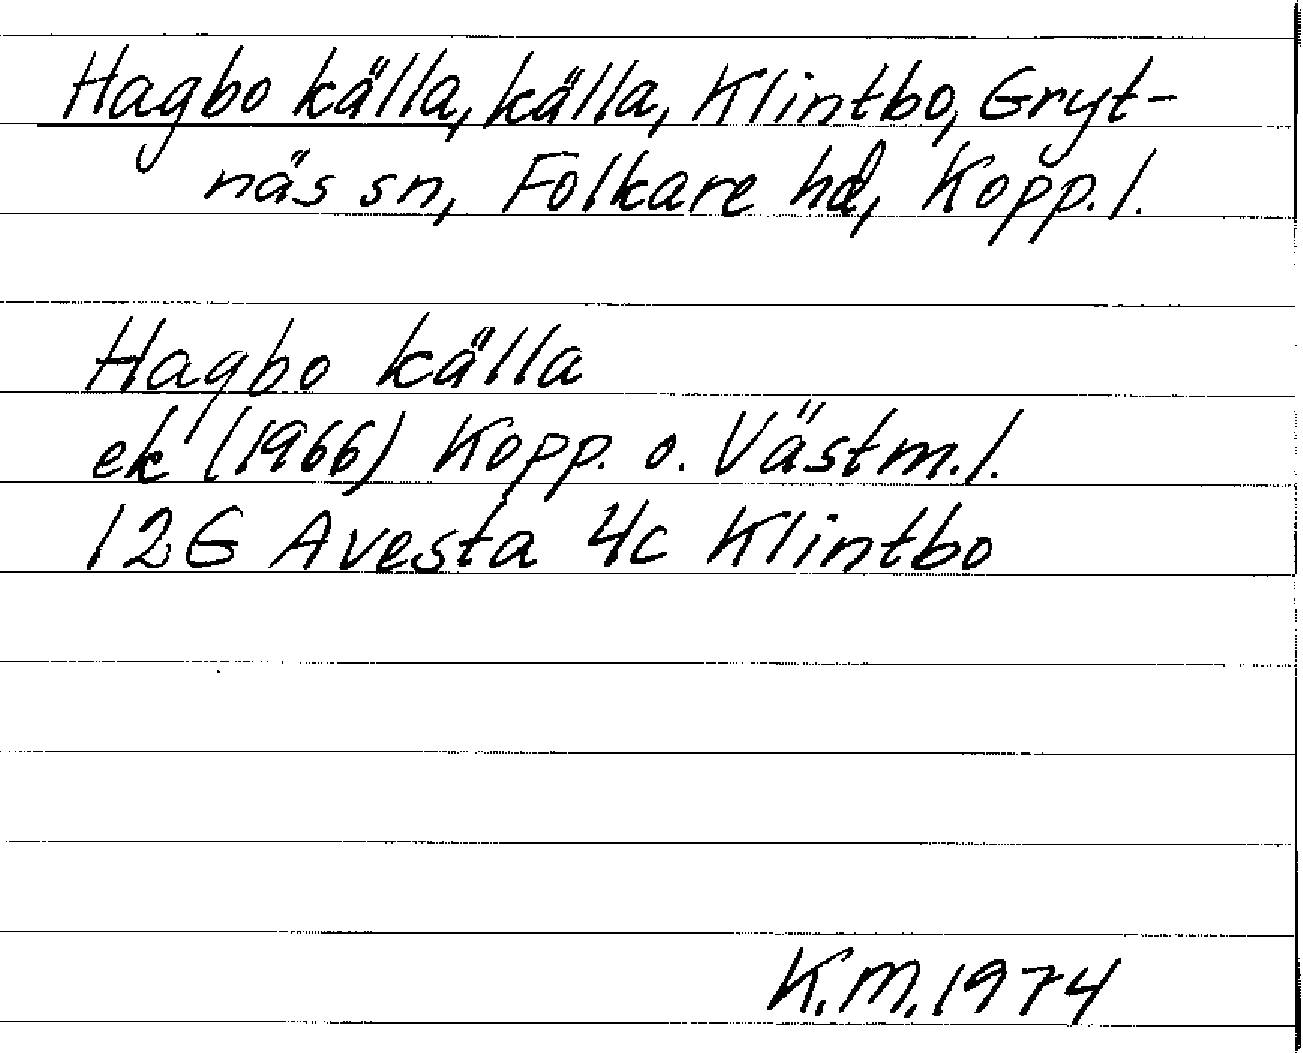 Hagbo källa, källa, Klintbo, Gryt-
näs sn, Folkare hd, Kopp. l.
Hagbo källa
ek (1966) Kopp. o. Västm. l.
12G Avesta 4c Klintbo
K.M. 1974